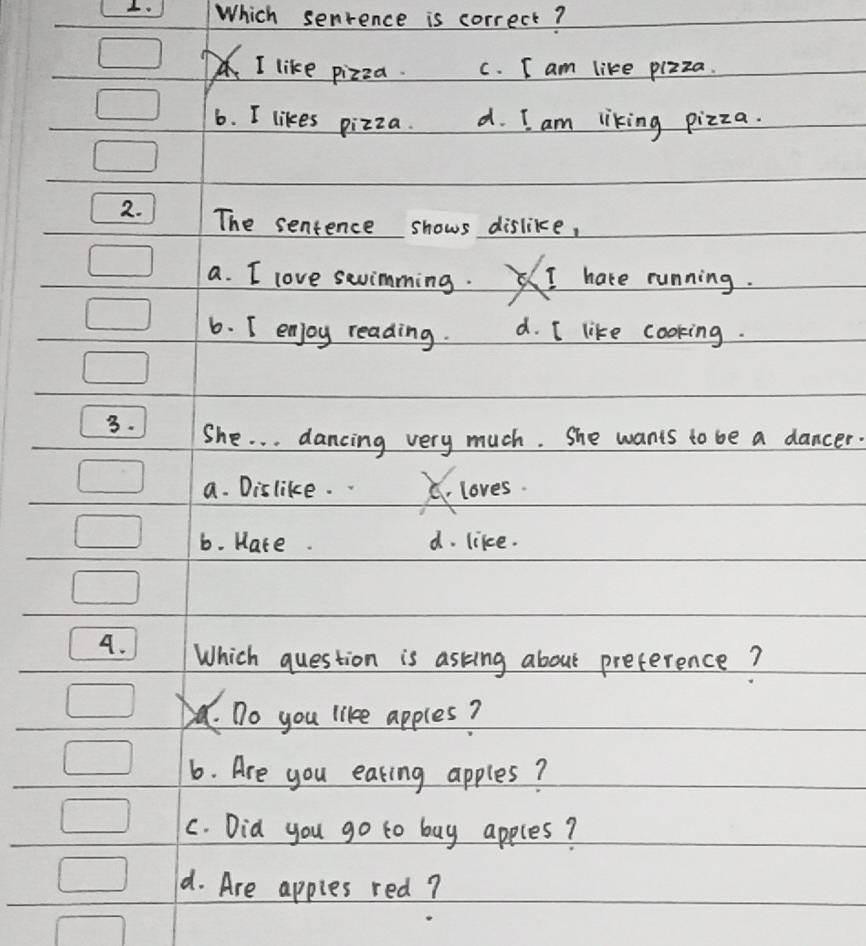 1. Which sentence is correct?
a. I like pizza. c. I am like pizza.
b. I likes pizza. d. I am liking pizza.
2. The sentence shows dislike,
a. I love swimming. c. I hate running.
b. I enjoy reading. d. I like cooking.
3. She... dancing very much. She wants to be a dancer.
a. Dislike.. c. loves.
b. Hate. d. like.
4. Which question is asking about preference?
a. Do you like apples?
b. Are you eating apples?
c. Did you go to buy apples?
d. Are apples red?